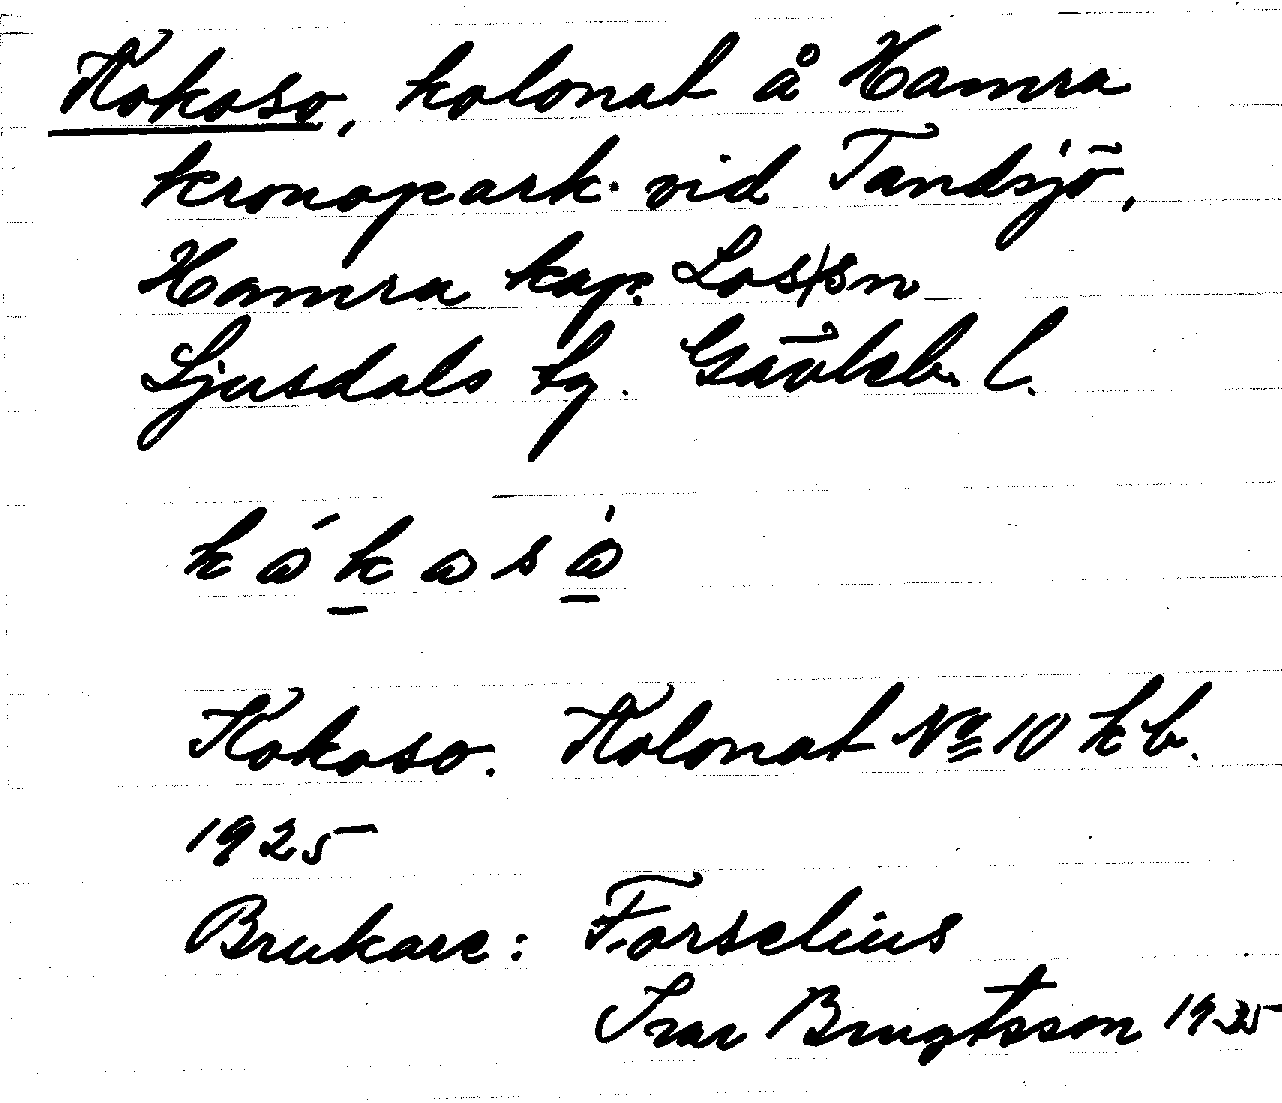 Kokoso, kolonat å Hamra
kronopark vid Tandsjö,
Hamra kap. Los sn
Ljusdals tg. Gävleb. l.
kókasò
Kokoso. Kolonat № 10 kb.
1925
Brukare: Forselius
Ivar Bengtsson 1935